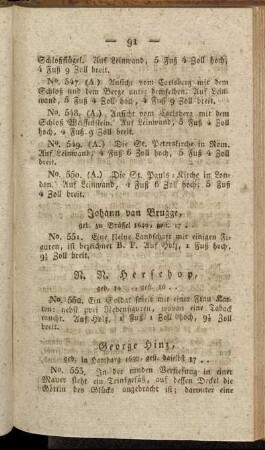 — 91 —
Schloßflügel. Auf Leinwand, 5 Fuß 4 Zoll hoch,
4 Fuß 9 Zoll breit.
No. 547. (A.) Ansicht vom Carlsberg mit dem
Schloß und dem Berge unter demselben. Auf Lein-
wand, 5 Fuß 4 Zoll hoch, 4 Fuß 9 Zoll breit.
No. 548. (A.) Ansicht vom Carlsberg mit dem
Schloß Weissenstein. Auf Leinwand, 5 Fuß 4 Zoll
hoch, 4 Fuß 9 Zoll breit.
No. 549. (A.) Die St. Peterskirche in Rom.
Auf Leinwand, 4 Fuß 4 Zoll hoch, 4 Fuß 9 Zoll
breit.
No. 550. (A.) Die St. Pauls-Kirche in Lon-
don. Auf Leinwand, 4 Fuß 6 Zoll hoch, 4 Fuß
9 Zoll breit.
Johann van Brugge,
geb. zu Brüssel 1649, gest. 17 . .
No. 551. Eine kleine Landschaft mit einigen Fi-
guren, ist bezeichnet B. F. Auf Holz, 1 Fuß hoch,
9½ Zoll breit.
N. N. Herschop,
geb. 16 . . gest. 16 . .
No. 552. Ein Soldat spielt mit einer Frau Kar-
ten: nebst zwei Nebenfiguren, wovon eine Taback
raucht. Auf Holz, 1 Fuß 1 Zoll hoch, 9½ Zoll
breit.
George Hinz,
geb. in Hamburg 1630, gest. daselbst 17 . .
No. 553. In der runden Vertiefung in einer
Mauer steht ein Trinkgefäß, auf dessen Deckel die
Göttin des Glücks angebracht ist; darunter eine